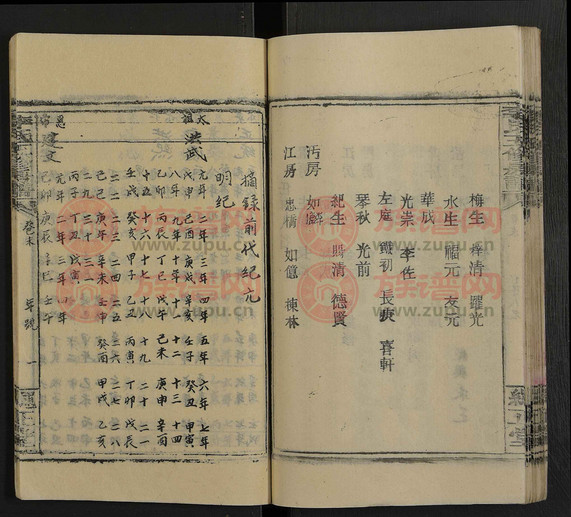 梅生 清 羅光
水生 福元 友元
華成
光崇 李佐
左庭 鐵初 長庚 喜軒
琴秋 光前
紀生 賜清 德賢
汚房 如
江房 忠情 如億 棟林
摘錄前代紀元
明紀
太祖 洪武 元年 二年 三年 四年 五年 六年 七年
戊申 己酉 庚戌 辛亥 壬子 癸丑 甲寅
八年 九年 十年 十一 十二 十三 十四
乙卯 丙辰 丁巳 戊午 己未 庚申 辛酉
十五 十六 十七 十八 十九 二十 二一
壬戌 癸亥 甲子 乙丑 丙寅 丁卯 戊辰
二二 二三 二四 二五 二六 二七 二八
己巳 庚午 辛未 壬申 癸酉 甲戌 乙亥
二九 三十 三一
丙子 丁丑 戊寅
惠帝 建文 元年 二年 三年 四年
己卯 庚辰 辛巳 壬午
卷末 年號 一
族谱网
www.zupu.cn
族谱网
www.zupu.cn